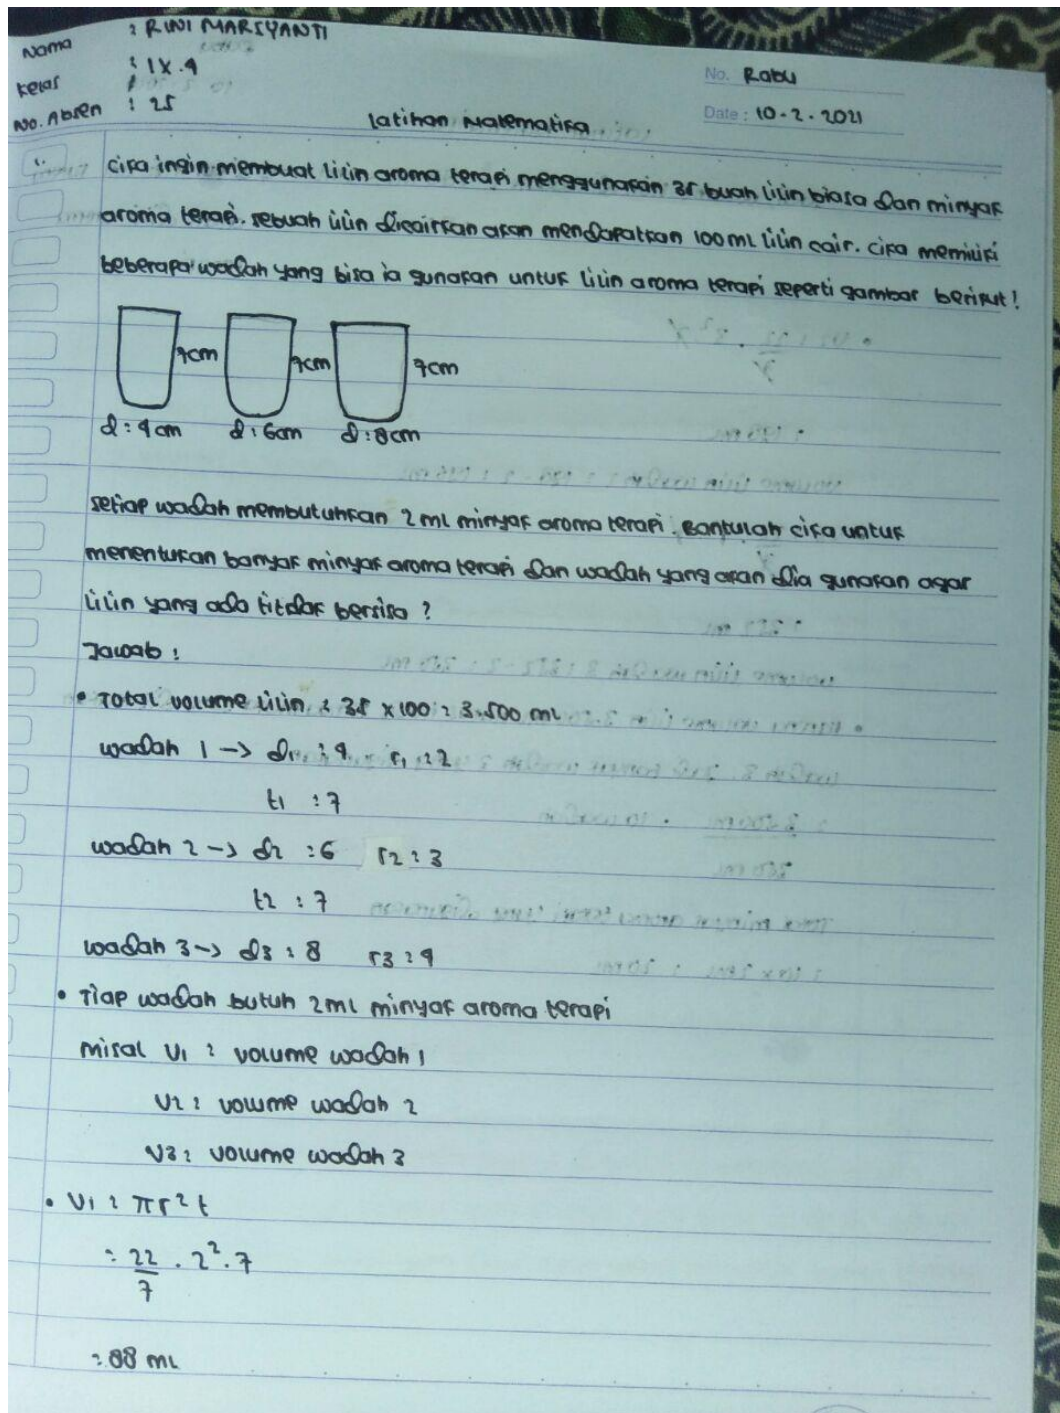 Nama : RINI MARIYANTI
Kelas : IX.4
No. Absen : 25
No. Rabu
Date : 10-2-2021
Latihan Matematika
1. Cika ingin membuat lilin aroma terapi menggunakan 35 buah lilin biasa dan minyak
aroma terapi. sebuah lilin dicairkan akan mendapatkan 100 ml lilin cair. cika memiliki
beberapa wadah yang bisa ia gunakan untuk lilin aroma terapi seperti gambar berikut!
7cm 7cm 7cm
d : 4 cm d : 6 cm d : 8 cm
setiap wadah membutuhkan 2 ml minyak aroma terapi. Bantulah cika untuk
menentukan banyak minyak aroma terapi dan wadah yang akan dia gunakan agar
lilin yang ada titdak bersisa ?
Jawab :
• Total volume lilin : 35 x 100 : 3.500 ml
wadah 1 -> d1 : 4 r1 : 2
t1 : 7
wadah 2 -> d2 : 6 r2 : 3
t2 : 7
wadah 3 -> d3 : 8 r3 : 4
• Tiap wadah butuh 2 ml minyak aroma terapi
misal V1 : volume wadah 1
V2 : volume wadah 2
V3 : volume wadah 3
• V1 : πr²t
: 22/7 . 2² . 7
: 88 ml